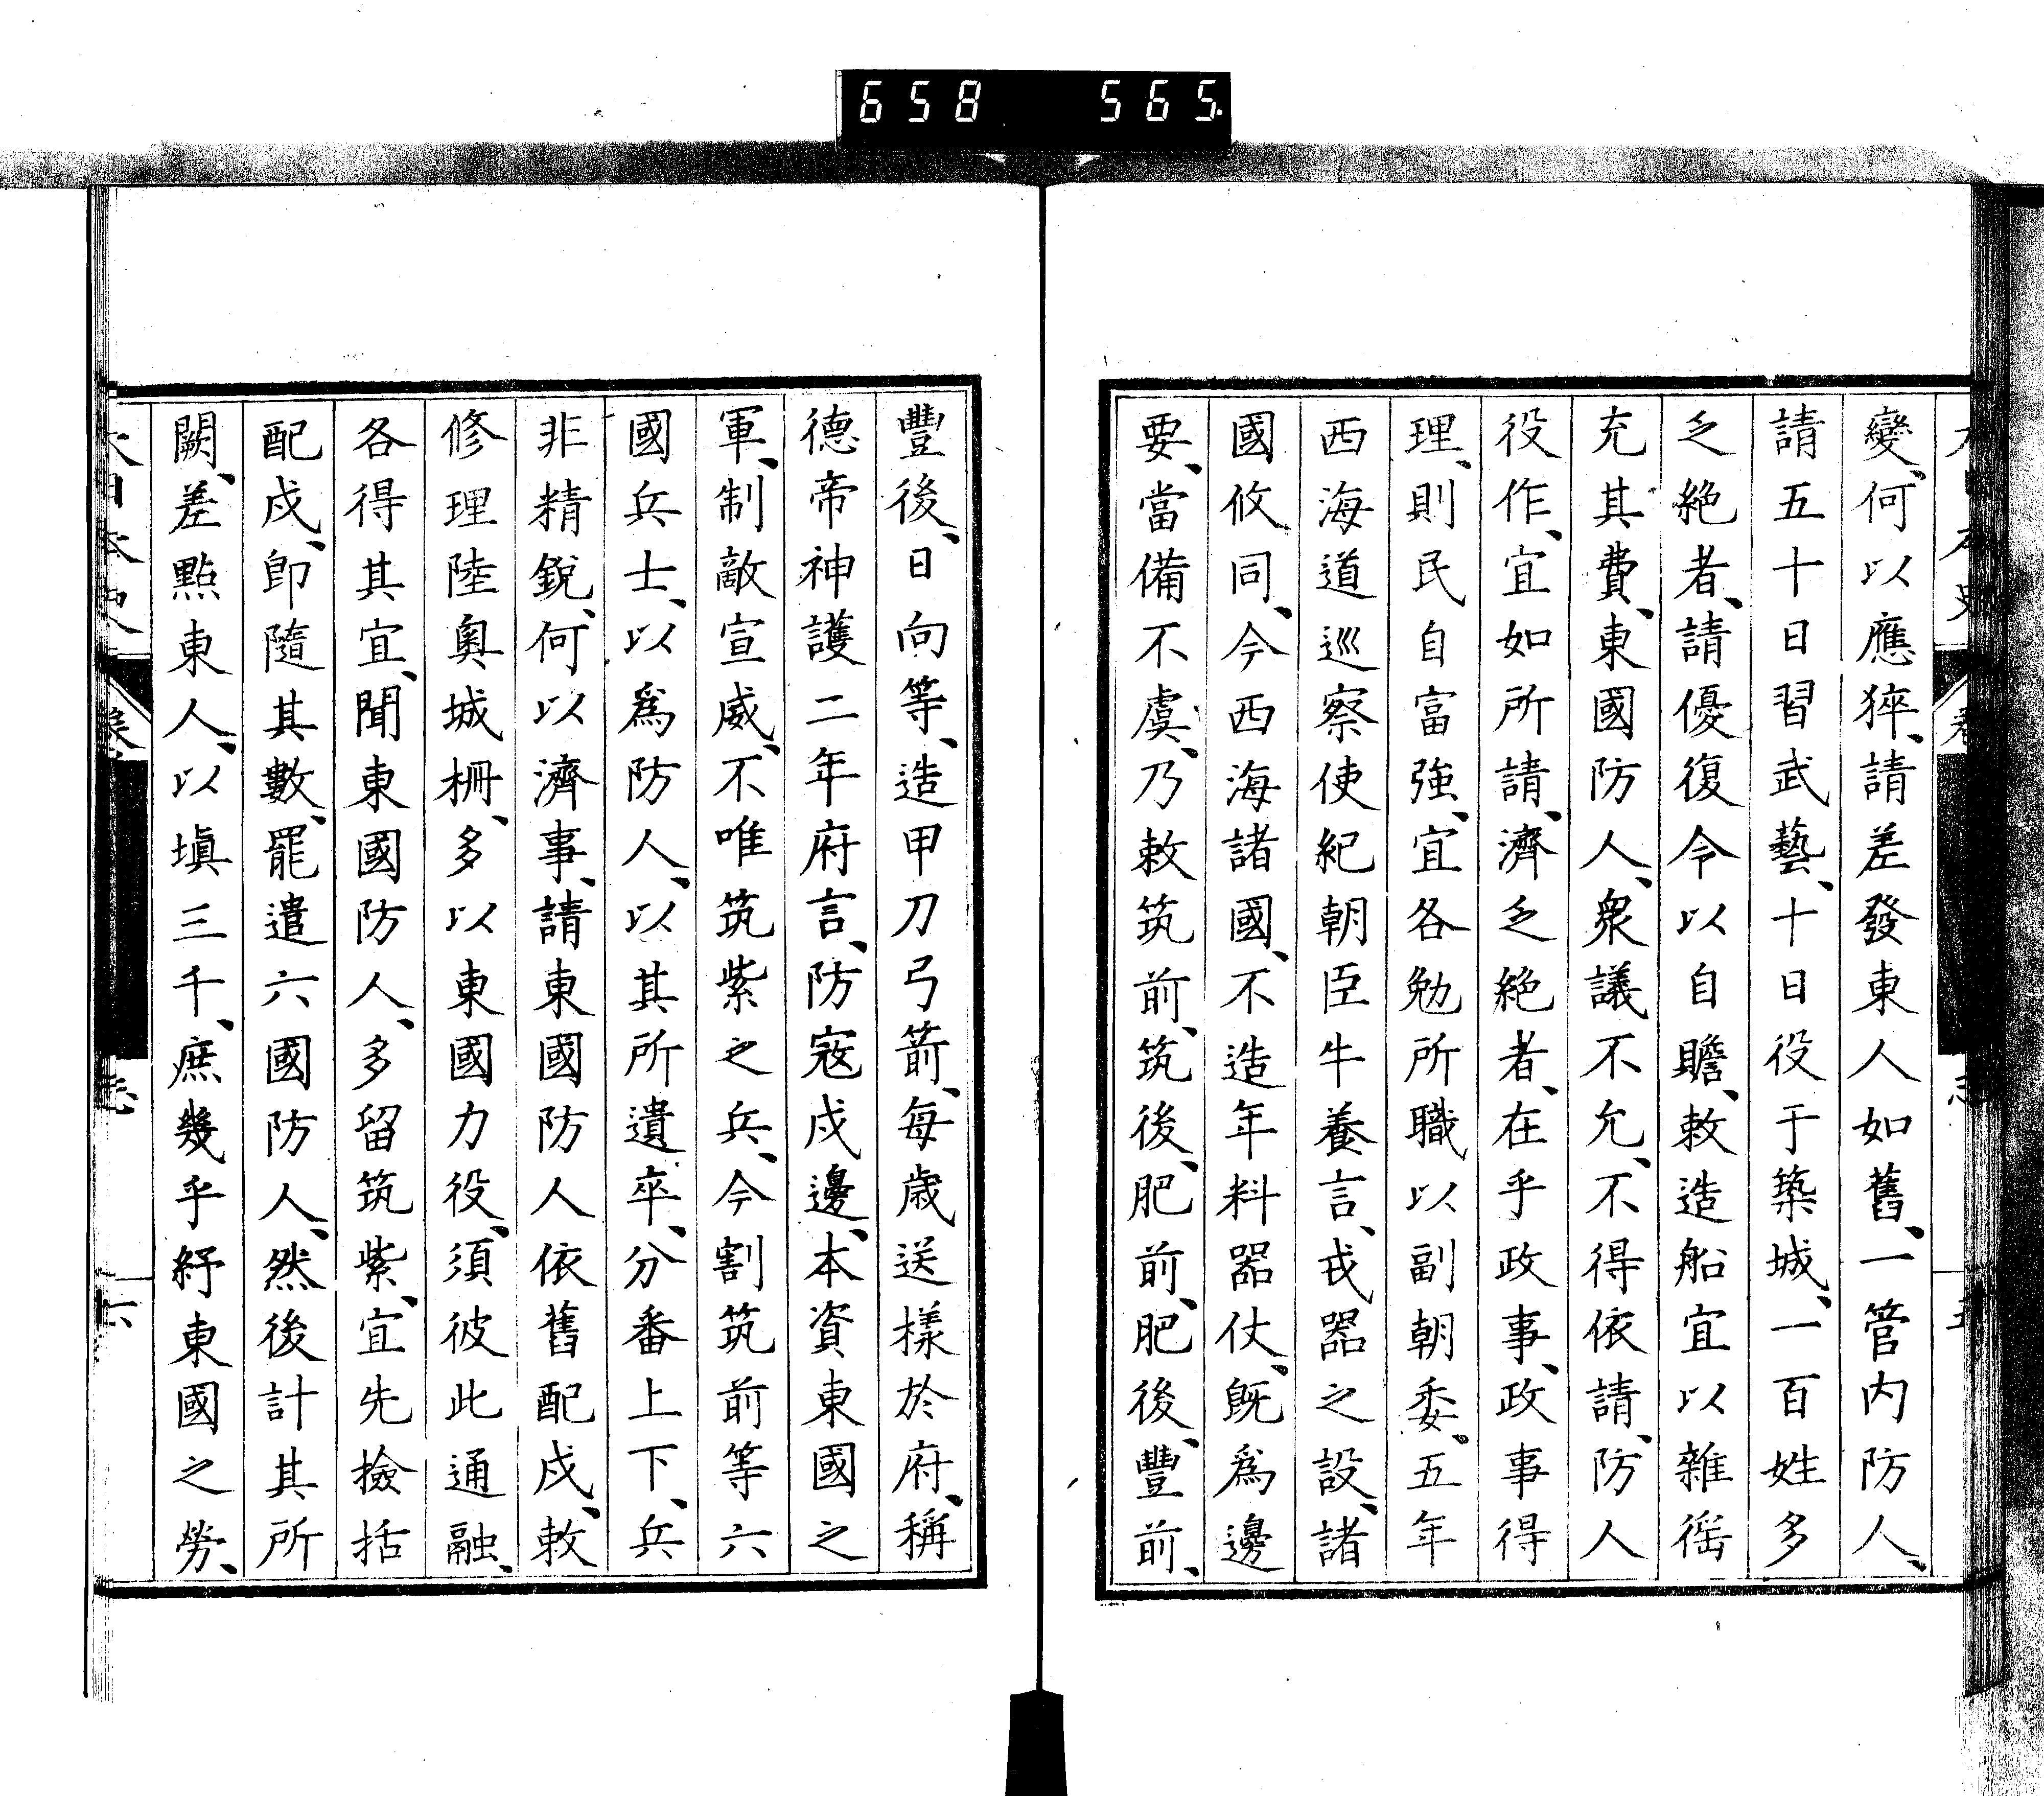 658 565
變、何以應猝、請差發東人如舊、一管内防人、
請五十日習武藝、十日役于築城、一百姓多
乏絶者、請優復令以自贍、敕造船宜以雜徭
充其費、東國防人、衆議不允、不得依請、防人
役作、宜如所請、濟乏絶者、在乎政事、政事得
理、則民自富強、宜各勉所職以副朝委、五年
西海道巡察使紀朝臣牛養言、戎器之設、諸
國攸同、今西海諸國、不造年料器仗、既爲邊
要、當備不虞、乃敕筑前、筑後、肥前、肥後、豐前、
豐後、日向等、造甲刀弓箭、每歳送樣於府、稱
德帝神護二年府言、防寇戍邊、本資東國之
軍、制敵宣威、不唯筑紫之兵、今割筑前等六
國兵士、以爲防人、以其所遺卒、分番上下、兵
非精銳、何以濟事、請東國防人依舊配戍、敕
修理陸奧城柵、多以東國力役、須彼此通融、
各得其宜、聞東國防人、多留筑紫、宜先撿括
配戍、卽隨其數、罷遣六國防人、然後計其所
闕、差點東人、以塡三千、庶幾乎紓東國之勞、
大日本史 志 六